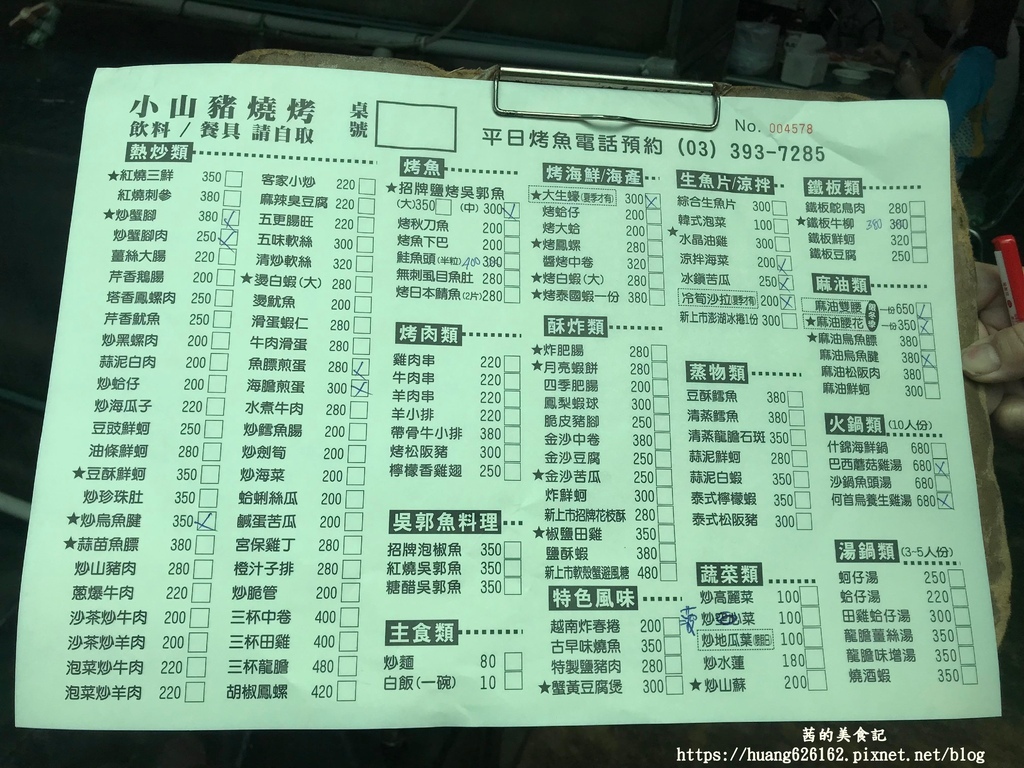 小山豬燒烤
飲料 / 餐具 請自取
桌號
No. 004578
平日烤魚電話預約 (03) 393-7285
熱炒類
★紅燒三鮮 350
紅燒刺參 380
★炒蟹腳 380
炒蟹腳肉 250
薑絲大腸 220
芹香鵝腸 200
塔香鳳螺肉 250
芹香魷魚 250
炒黑螺肉 200
蒜泥白肉 200
炒蛤仔 200
炒海瓜子 220
豆豉鮮蚵 250
油條鮮蚵 280
★豆酥鮮蚵 350
炒珍珠肚 350
★炒烏魚腱 350
★蒜苗魚膘 380
炒山豬肉 280
蔥爆牛肉 220
沙茶炒牛肉 200
沙茶炒羊肉 200
泡菜炒牛肉 220
泡菜炒羊肉 220
客家小炒 220
麻辣臭豆腐 220
五更腸旺 220
五味軟絲 300
清炒軟絲 320
★燙白蝦(大) 280
燙魷魚 200
滑蛋蝦仁 280
牛肉滑蛋 280
魚膘煎蛋 280
海膽煎蛋 300
水煮牛肉 280
炒鱈魚腸 200
炒劍筍 200
炒海菜 200
蛤蜊絲瓜 200
鹹蛋苦瓜 200
宮保雞丁 280
橙汁子排 280
炒脆管 200
三杯中卷 400
三杯田雞 400
三杯龍膽 480
胡椒鳳螺 420
烤魚
★招牌鹽烤吳郭魚
(大)350 (中) 300
烤秋刀魚 200
烤魚下巴 200
鮭魚頭(半粒) 400 300
無刺虱目魚肚 280
烤日本鯖魚(2片) 280
烤肉類
雞肉串 220
牛肉串 220
羊肉串 220
羊小排 220
帶骨牛小排 380
烤松阪豬 300
檸檬香雞翅 250
吳郭魚料理
招牌泡椒魚 350
紅燒吳郭魚 350
糖醋吳郭魚 350
主食類
炒麵 80
白飯(一碗) 10
烤海鮮/海產
★大生蠔(夏季才有) 300
烤蛤仔 200
烤大蛤 200
★烤鳳螺 280
醬烤中卷 320
★烤白蝦(大) 280
★烤泰國蝦一份 380
酥炸類
★炸肥腸 280
★月亮蝦餅 280
四季肥腸 280
鳳梨蝦球 280
脆皮豬腳 280
金沙中卷 380
金沙豆腐 250
★金沙苦瓜 250
炸鮮蚵 300
新上市招牌花枝酥 300
★椒鹽田雞 350
鹽酥蝦 380
新上市軟殼蟹避風糖 480
特色風味
越南炸春捲 200
古早味燒魚 350
特製鹽豬肉 280
★蟹黃豆腐煲 300
生魚片/涼拌
綜合生魚片 300
韓式泡菜 100
★水晶油雞 300
涼拌海菜 200
冰鎮苦瓜 250
冷筍沙拉(夏季才有) 200
新上市澎湖冰捲1份 300
蒸物類
豆酥鱈魚 380
清蒸鱈魚 380
清蒸龍膽石斑 380
蒜泥鮮蚵 280
蒜泥白蝦 350
泰式檸檬蝦 350
泰式松阪豬 300
蔬菜類
炒高麗菜 100
菜 100
炒地瓜葉 100
炒水蓮 180
★炒山蘇 200
鐵板類
鐵板鴕鳥肉 280
★鐵板牛柳 380 360
鐵板鮮蚵 320
鐵板豆腐 250
麻油類
麻油雙腰 一份650
★麻油腰花 一份350
★麻油烏魚膘 380
麻油烏魚腱 380
麻油松阪肉 380
麻油鮮蚵 300
火鍋類(10人份)
什錦海鮮鍋 680
巴西蘑菇雞湯 680
沙鍋魚頭湯 680
何首烏養生雞湯 680
湯鍋類(3-5人份)
蚵仔湯 250
蛤仔湯 220
田雞蛤仔湯 300
龍膽薑絲湯 350
龍膽味增湯 350
燒酒蝦 350
茜的美食記
https://huang626162.pixnet.net/blog